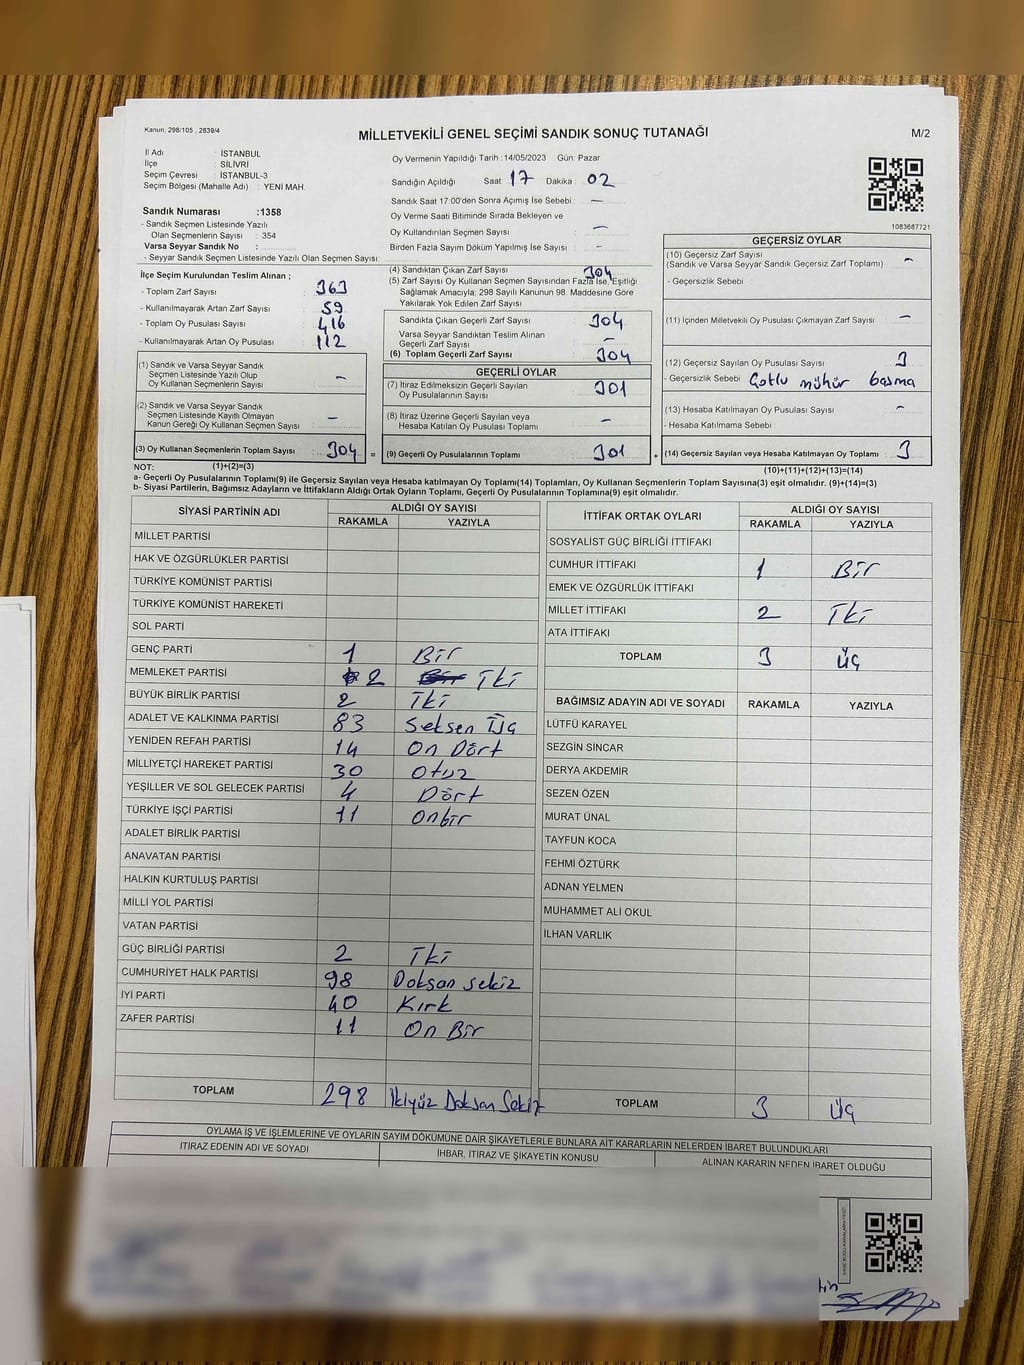 Kanun, 298/105 , 2839/4
MİLLETVEKİLİ GENEL SEÇİMİ SANDIK SONUÇ TUTANAĞI
M/2
İl Adı : İSTANBUL
İlçe : SİLİVRİ
Seçim Çevresi : İSTANBUL-3
Seçim Bölgesi (Mahalle Adı) : YENİ MAH.
Sandık Numarası :1358
- Sandık Seçmen Listesinde Yazılı
Olan Seçmenlerin Sayısı : 354
Varsa Seyyar Sandık No :
- Seyyar Sandık Seçmen Listesinde Yazılı Olan Seçmen Sayısı:
Oy Vermenin Yapıldığı Tarih : 14/05/2023 Gün: Pazar
Sandığın Açıldığı Saat : 17 Dakika : 02
Sandık Saat 17:00'den Sonra Açımış İse Sebebi : –
Oy Verme Saati Bitiminde Sırada Bekleyen ve
Oy Kullandırılan Seçmen Sayısı : –
Birden Fazla Sayım Döküm Yapılmış İse Sayısı : –
1083687721
İlçe Seçim Kurulundan Teslim Alınan ;
- Toplam Zarf Sayısı : 363
- Kullanılmayarak Artan Zarf Sayısı : 59
- Toplam Oy Pusulası Sayısı : 416
- Kullanılmayarak Artan Oy Pusulası : 112
(1) Sandık ve Varsa Seyyar Sandık
Seçmen Listesinde Yazılı Olup
Oy Kullanan Seçmenlerin Sayısı : –
(2) Sandık ve Varsa Seyyar Sandık
Seçmen Listesinde Kayıtlı Olmayan
Kanun Gereği Oy Kullanan Seçmen Sayısı : –
(3) Oy Kullanan Seçmenlerin Toplam Sayısı : 304 =
(4) Sandıktan Çıkan Zarf Sayısı : 304
(5) Zarf Sayısı Oy Kullanan Seçmen Sayısından Fazla İse, Eşitliği
Sağlamak Amacıyla; 298 Sayılı Kanunun 98. Maddesine Göre
Yakılarak Yok Edilen Zarf Sayısı :
Sandıkta Çıkan Geçerli Zarf Sayısı : 304
Varsa Seyyar Sandıktan Teslim Alınan
Geçerli Zarf Sayısı : –
(6) Toplam Geçerli Zarf Sayısı : 304
GEÇERLİ OYLAR
(7) İtiraz Edilmeksizin Geçerli Sayılan
Oy Pusulalarının Sayısı : 301
(8) İtiraz Üzerine Geçerli Sayılan veya
Hesaba Katılan Oy Pusulası Toplamı : –
(9) Geçerli Oy Pusulalarının Toplamı : 301 +
GEÇERSİZ OYLAR
(10) Geçersiz Zarf Sayısı
(Sandık ve Varsa Seyyar Sandık Geçersiz Zarf Toplamı) : –
- Geçersizlik Sebebi :
(11) İçinden Milletvekili Oy Pusulası Çıkmayan Zarf Sayısı : –
(12) Geçersiz Sayılan Oy Pusulası Sayısı : 3
- Geçersizlik Sebebi : Çoklu mühür basma
(13) Hesaba Katılmayan Oy Pusulası Sayısı : –
- Hesaba Katılmama Sebebi :
(14) Geçersiz Sayılan veya Hesaba Katılmayan Oy Toplamı : 3
NOT: (1)+(2)=(3) (10)+(11)+(12)+(13)=(14)
a- Geçerli Oy Pusulalarının Toplamı(9) ile Geçersiz Sayılan veya Hesaba katılmayan Oy Toplamı(14) Toplamları, Oy Kullanan Seçmenlerin Toplam Sayısına(3) eşit olmalıdır. (9)+(14)=(3)
b- Siyasi Partilerin, Bağımsız Adayların ve İttifakların Aldığı Ortak Oyların Toplamı, Geçerli Oy Pusulalarının Toplamına(9) eşit olmalıdır.
SİYASİ PARTİNİN ADI ALDIĞI OY SAYISI
RAKAMLA YAZIYLA
MİLLET PARTİSİ
HAK VE ÖZGÜRLÜKLER PARTİSİ
TÜRKİYE KOMÜNİST PARTİSİ
TÜRKİYE KOMÜNİST HAREKETİ
SOL PARTİ
GENÇ PARTİ 1 Bir
MEMLEKET PARTİSİ 2 İki
BÜYÜK BİRLİK PARTİSİ 2 İki
ADALET VE KALKINMA PARTİSİ 83 Seksen Üç
YENİDEN REFAH PARTİSİ 14 On Dört
MİLLİYETÇİ HAREKET PARTİSİ 30 Otuz
YEŞİLLER VE SOL GELECEK PARTİSİ 4 Dört
TÜRKİYE İŞÇİ PARTİSİ 11 Onbir
ADALET BİRLİK PARTİSİ
ANAVATAN PARTİSİ
HALKIN KURTULUŞ PARTİSİ
MİLLİ YOL PARTİSİ
VATAN PARTİSİ
GÜÇ BİRLİĞİ PARTİSİ 2 İki
CUMHURİYET HALK PARTİSİ 98 Doksan sekiz
İYİ PARTİ 40 Kırk
ZAFER PARTİSİ 11 On Bir
TOPLAM 298 İkiyüz Doksan Sekiz
İTTİFAK ORTAK OYLARI ALDIĞI OY SAYISI
RAKAMLA YAZIYLA
SOSYALİST GÜÇ BİRLİĞİ İTTİFAKI
CUMHUR İTTİFAKI 1 Bir
EMEK VE ÖZGÜRLÜK İTTİFAKI
MİLLET İTTİFAKI 2 İki
ATA İTTİFAKI
TOPLAM 3 üç
BAĞIMSIZ ADAYIN ADI VE SOYADI RAKAMLA YAZIYLA
LÜTFÜ KARAYEL
SEZGİN SİNCAR
DERYA AKDEMİR
SEZEN ÖZEN
MURAT ÜNAL
TAYFUN KOCA
FEHMİ ÖZTÜRK
ADNAN YELMEN
MUHAMMET ALİ OKUL
İLHAN VARLIK
TOPLAM 3 üç
OYLAMA İŞ VE İŞLEMLERİNE VE OYLARIN SAYIM DÖKÜMÜNE DAİR ŞİKAYETLERLE BUNLARA AİT KARARLARIN NELERDEN İBARET BULUNDUKLARI
İTİRAZ EDENİN ADI VE SOYADI İHBAR, İTİRAZ VE ŞİKAYETİN KONUSU ALINAN KARARIN NEDEN İBARET OLDUĞU